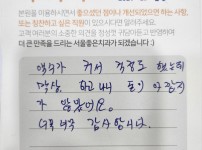 본원을 이용하시면서 좋으셨던 점이나 개선되었으면 하는 사항,
또는 칭찬하고 싶은 직원이 있으시다면 알려주세요.
고객 여러분의 소중한 의견을 정성껏 귀담아듣고 반영하여
더 큰 만족을 드리는 서울좋은치과가 되겠습니다 :)
액수가 커서 걱정도 했는데
막상 하고 나니 돈이 아깝지
가 않았어요.
너무 너무 감사합니다.